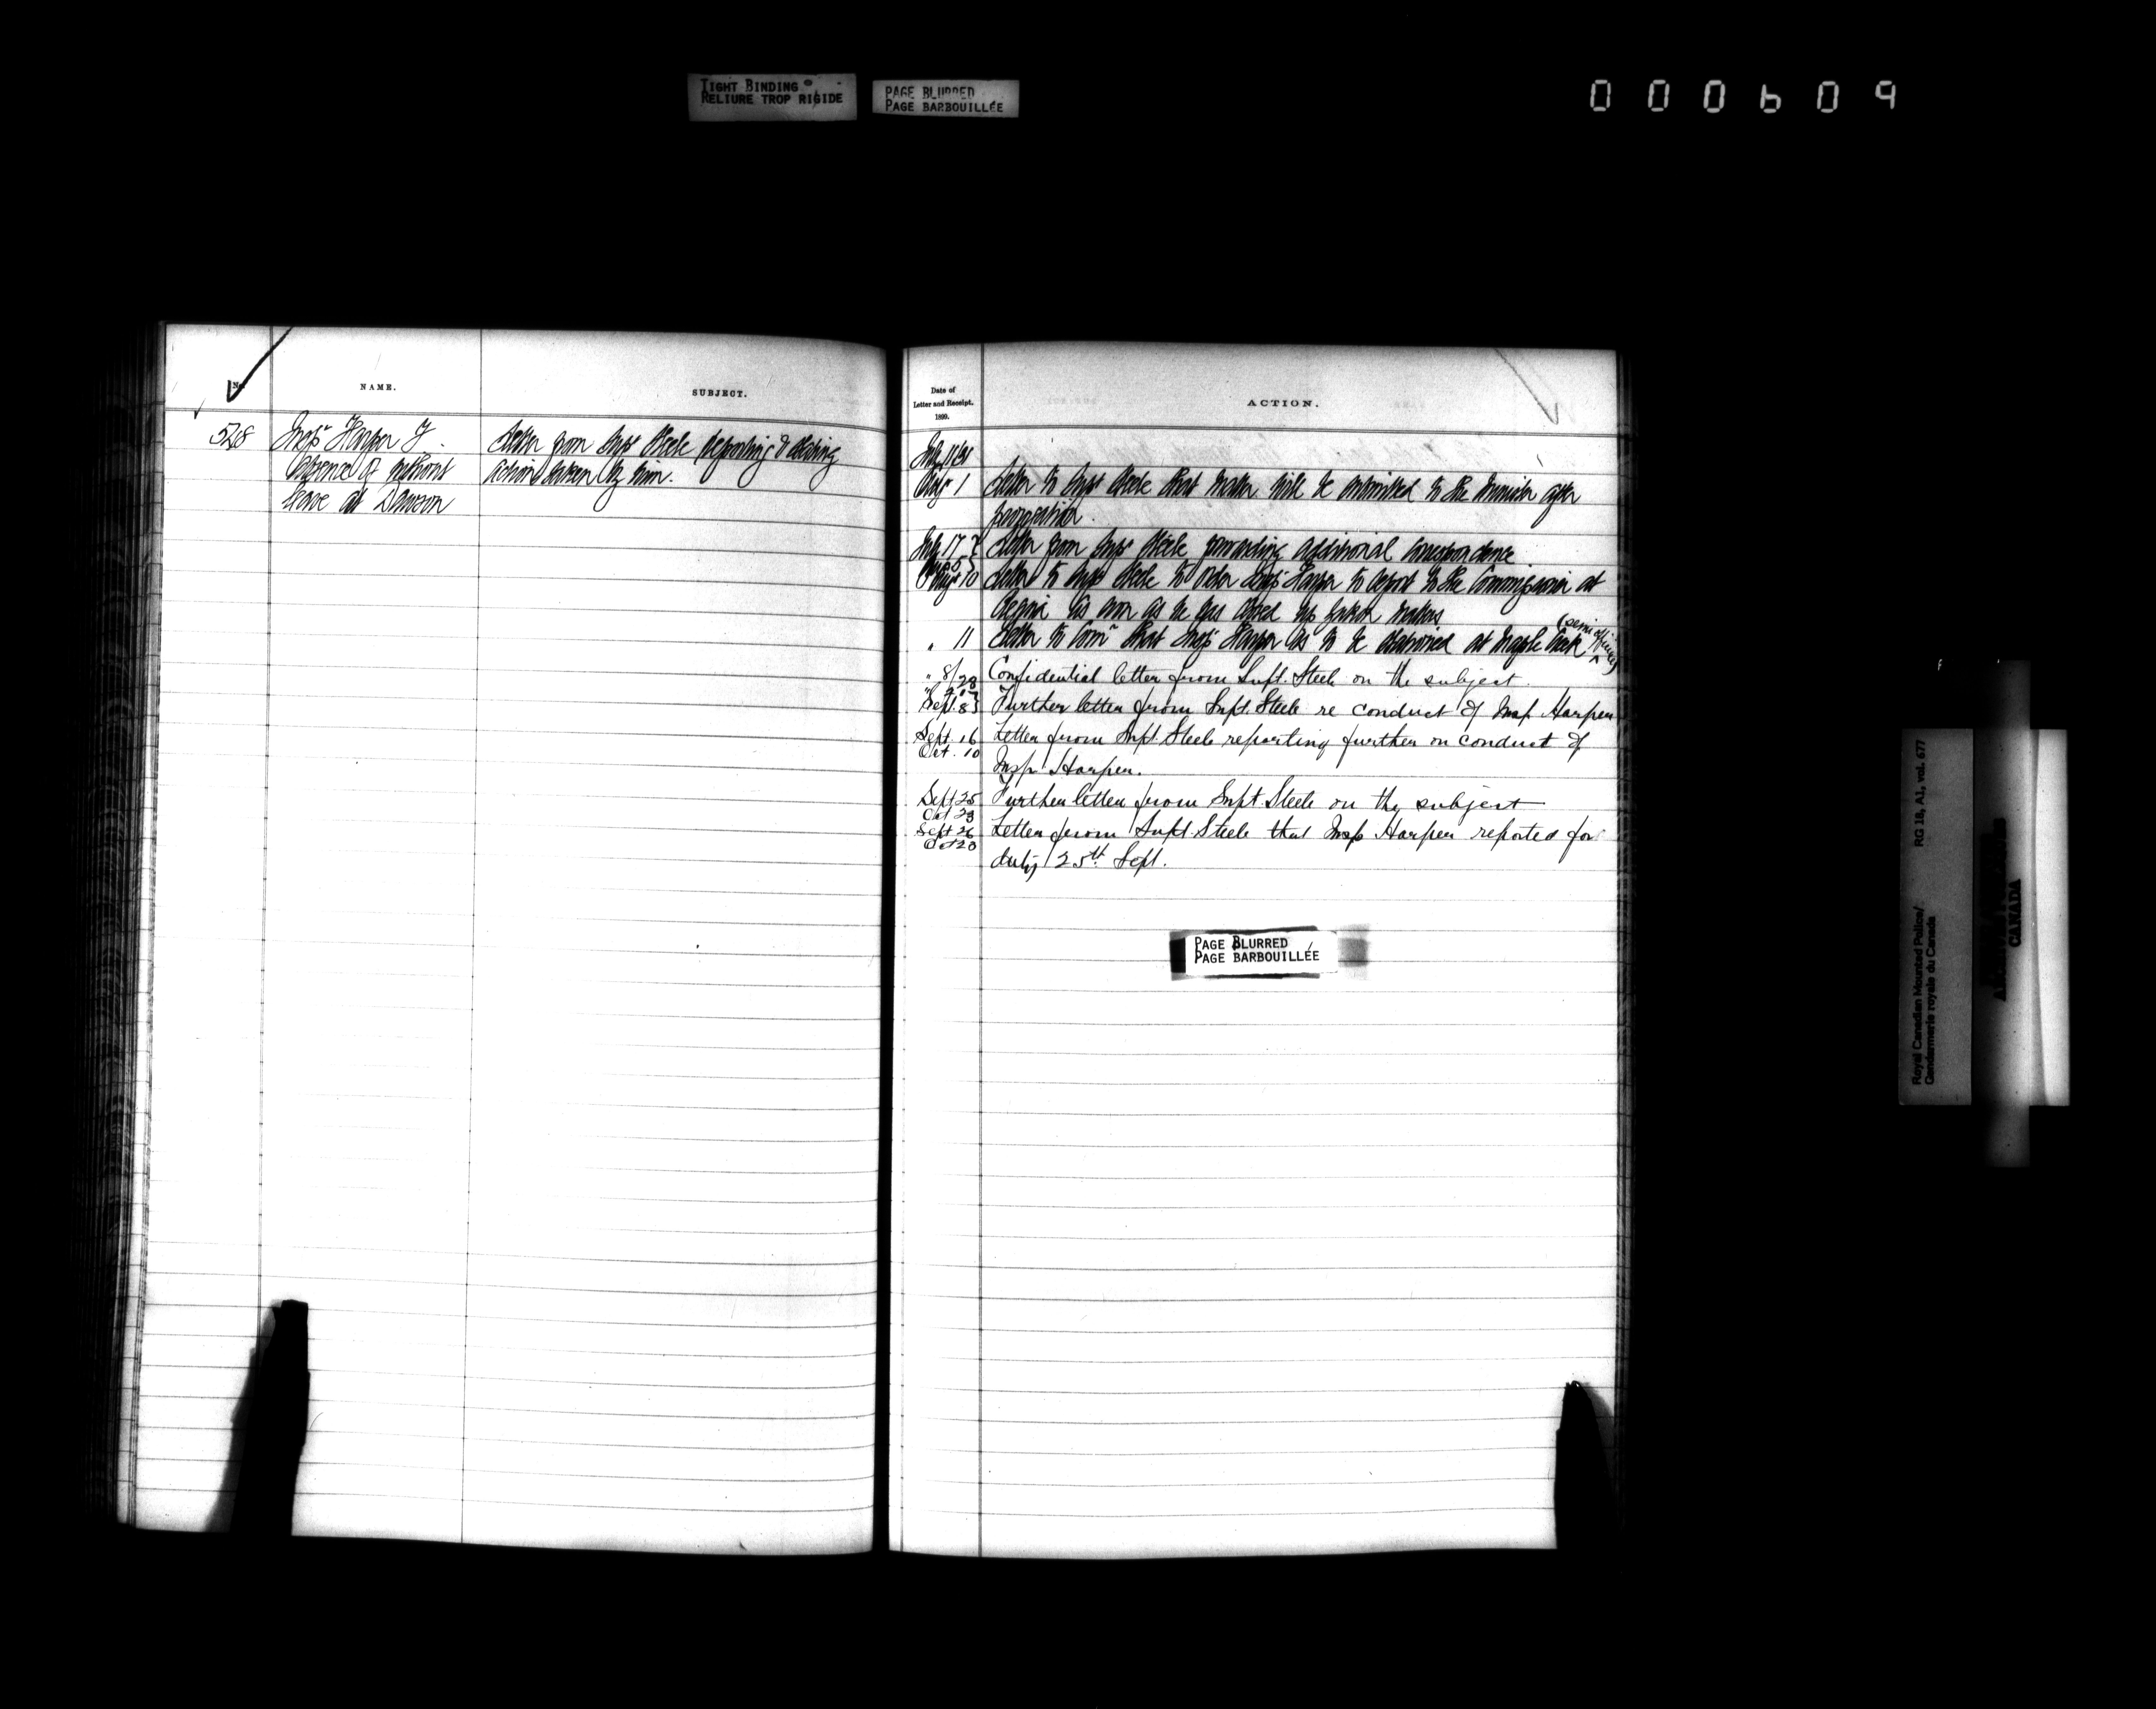 TIGHT BINDING
RELIURE TROP RIGIDE
PAGE BLURRED
PAGE BARBOUILLÉE
000609
No.
NAME.
SUBJECT.
528
Inspr Harper F.
Absence of without
leave at Dawson
Letter from Supt Steele reporting & stating
action taken by him.
Date of
Letter and Receipt.
1899.
ACTION.
July 11/31
Augt 1 Letter to Supt Steele that matter will be submitted to the Minister after
prorogation.
July 17 Letter from Supt Steele forwarding additional correspondence
Aug 5
Augt 10 Letter to Supt Steele to order Inspr Harper to report to the Commissioner at
Regina as soon as he has closed up Yukon matters
" 11 Letter to Comr that Inspr Harper is to be stationed at Maple Creek (semi official)
" 8/28 Confidential letter from Supt. Steele on the subject.
Sept. 8 Further letter from Supt. Steele re conduct of Insp Harper
Sept. 16 Letter from Supt. Steele reporting further on conduct of
Oct. 10
Insp Harper.
Sept 25 Further letter from Supt. Steele on the subject
Oct 23
Sept 26 Letter from Supt. Steele that Insp Harper reported for
Oct 20
duty 25th Sept.
PAGE BLURRED
PAGE BARBOUILLÉE
Royal Canadian Mounted Police/
Gendarmerie royale du Canada
RG 18, A1, vol. 677
CANADA